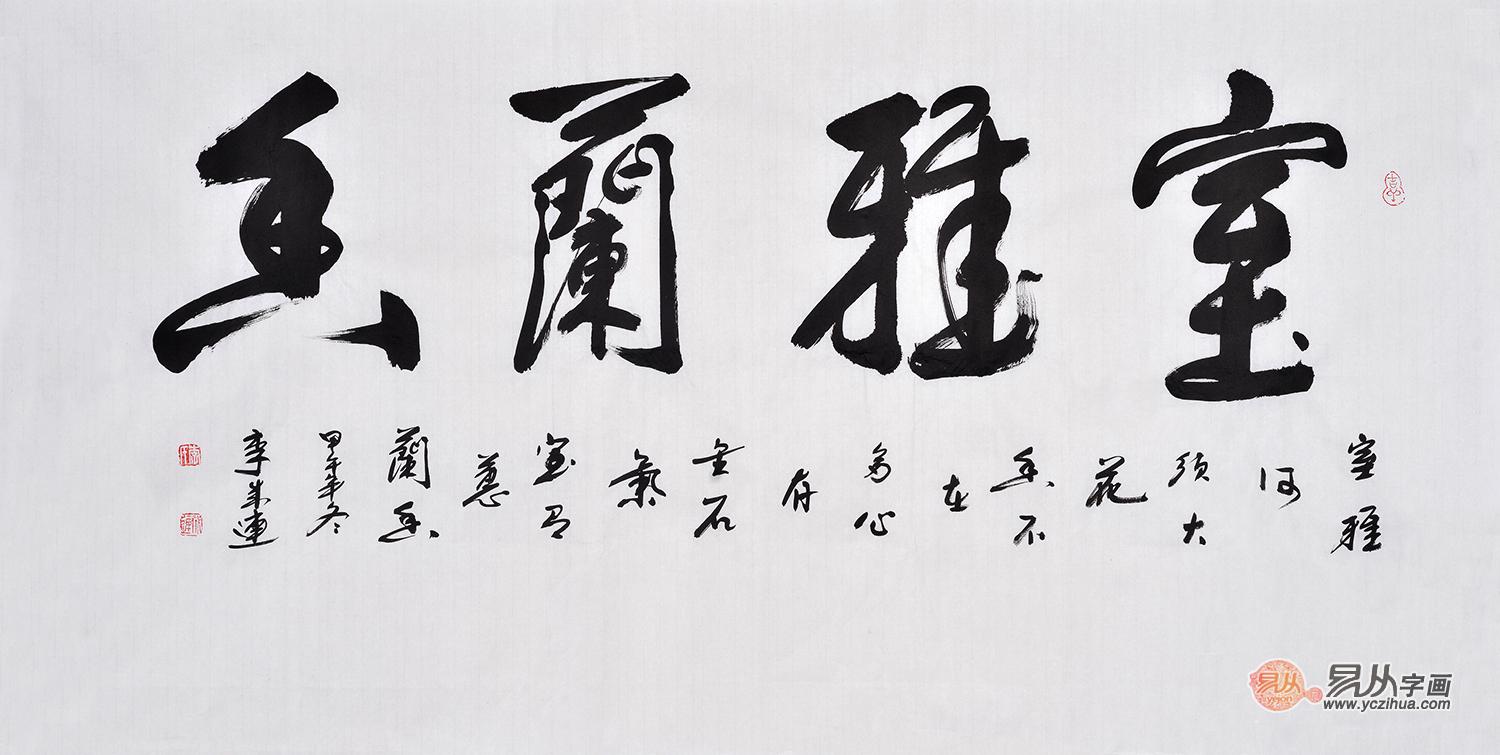 室雅蘭香
室雅
何
須大
花
香不
在
多心
存
金石
氣
室有
蕙
蘭香
甲午年冬
李成連
易从
易从字画
www.yczihua.com